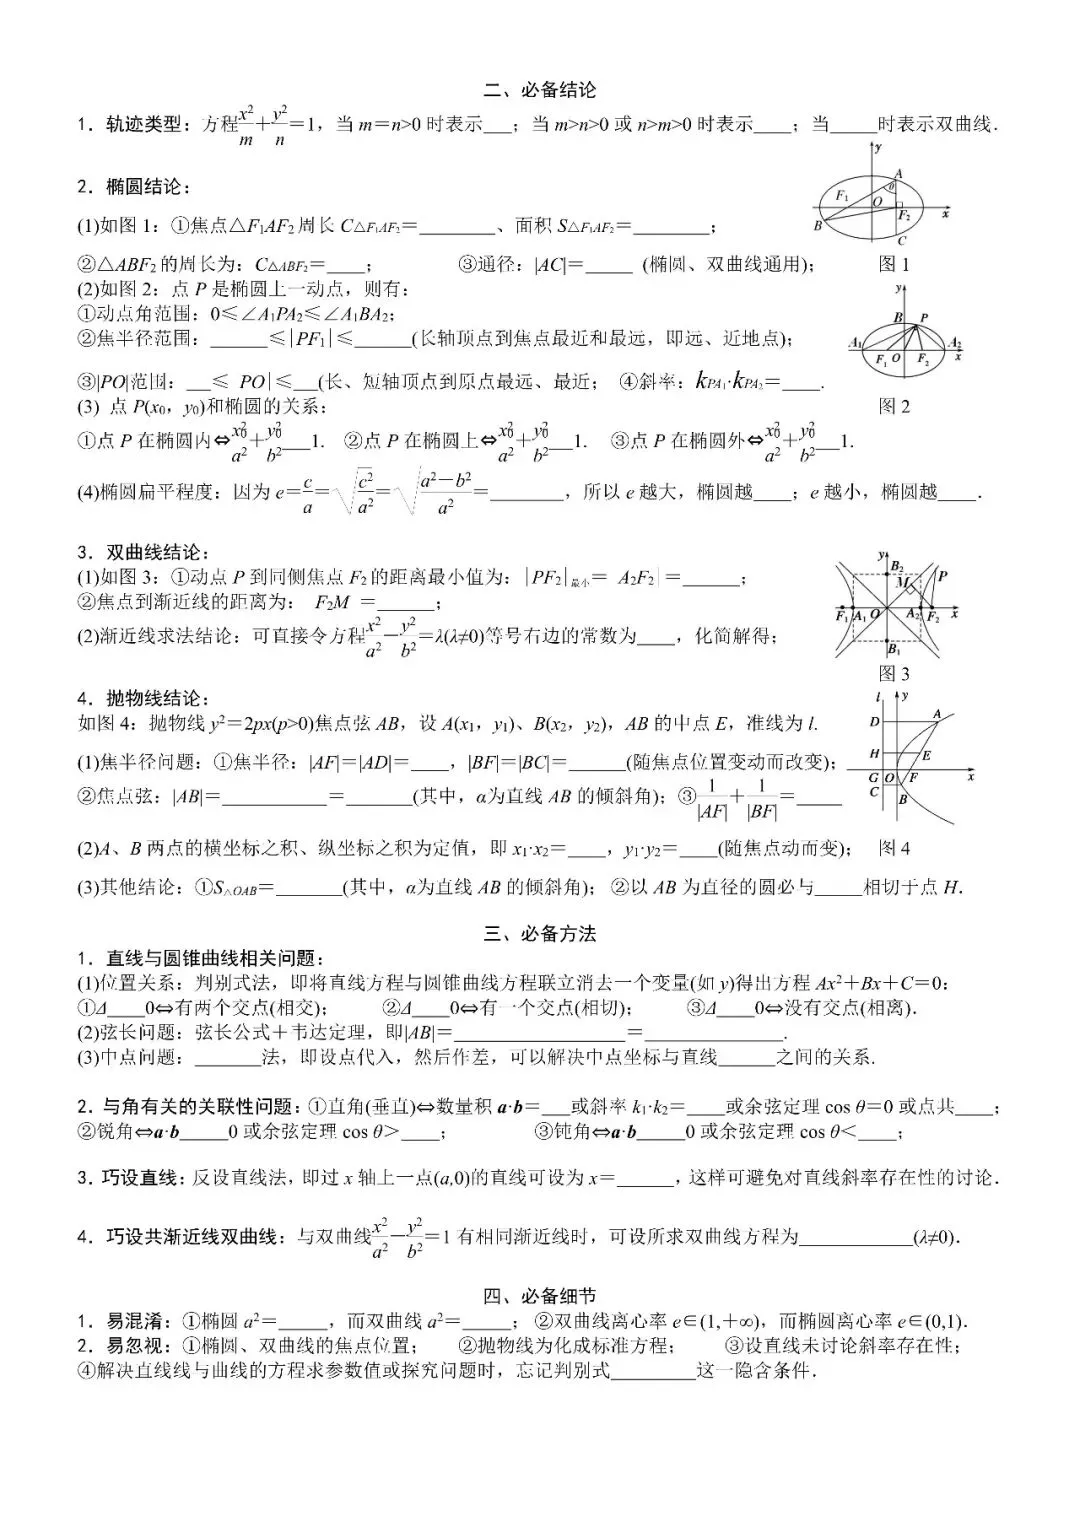 二、必备结论
1．轨迹类型：方程x²/m＋y²/n＝1，当 m＝n>0 时表示___；当 m>n>0 或 n>m>0 时表示____；当_____时表示双曲线．
2．椭圆结论：
(1)如图 1：①焦点△F₁AF₂ 周长 C△F₁AF₂＝________、面积 S△F₁AF₂＝________；
②△ABF₂ 的周长为：C△ABF₂＝____；　③通径：|AC|＝_____ (椭圆、双曲线通用)；
y A θ F₁ O F₂ x B C
图 1
(2)如图 2：点 P 是椭圆上一动点，则有：
①动点角范围：0≤∠A₁PA₂≤∠A₁BA₂；
②焦半径范围：______≤|PF₁|≤______(长轴顶点到焦点最近和最远，即远、近地点)；
③|PO|范围：___≤ PO|≤___(长、短轴顶点到原点最远、最近；　④斜率：kPA₁·kPA₂＝____.
y B P A₁ A₂ F₁ O F₂ x
图 2
(3) 点 P(x₀，y₀)和椭圆的关系：
①点 P 在椭圆内⇔x₀²/a²＋y₀²/b²___1.　②点 P 在椭圆上⇔x₀²/a²＋y₀²/b²___1.　③点 P 在椭圆外⇔x₀²/a²＋y₀²/b²___1.
(4)椭圆扁平程度：因为 e＝c/a＝√(c²/a²)＝√((a²－b²)/a²)＝________，所以 e 越大，椭圆越____；e 越小，椭圆越____．
3．双曲线结论：
(1)如图 3：①动点 P 到同侧焦点 F₂ 的距离最小值为：|PF₂|最小＝ A₂F₂|＝______；
②焦点到渐近线的距离为： F₂M ＝______；
(2)渐近线求法结论：可直接令方程x²/a²－y²/b²＝λ(λ≠0)等号右边的常数为____，化简解得；
y B₂ M P F₁ A₁ O A₂ F₂ x B₁
图 3
4．抛物线结论：
如图 4：抛物线 y²＝2px(p>0)焦点弦 AB，设 A(x₁，y₁)、B(x₂，y₂)，AB 的中点 E，准线为 l.
(1)焦半径问题：①焦半径：|AF|＝|AD|＝____，|BF|＝|BC|＝______(随焦点位置变动而改变)；
②焦点弦：|AB|＝___________＝_______(其中，α为直线 AB 的倾斜角)；③1/|AF|＋1/|BF|＝_____
l y D A H E G O F x C B
(2)A、B 两点的横坐标之积、纵坐标之积为定值，即 x₁·x₂＝____，y₁·y₂＝____(随焦点动而变)；　图 4
(3)其他结论：①S△OAB＝_______(其中，α为直线 AB 的倾斜角)；②以 AB 为直径的圆必与_____相切于点 H．
三、必备方法
1．直线与圆锥曲线相关问题：
(1)位置关系：判别式法，即将直线方程与圆锥曲线方程联立消去一个变量(如 y)得出方程 Ax²＋Bx＋C＝0：
①Δ____0⇔有两个交点(相交)；　②Δ____0⇔有一个交点(相切)；　③Δ____0⇔没有交点(相离)．
(2)弦长问题：弦长公式＋韦达定理，即|AB|＝__________________＝_______________.
(3)中点问题：_______法，即设点代入，然后作差，可以解决中点坐标与直线______之间的关系.
2．与角有关的关联性问题：①直角(垂直)⇔数量积 a·b＝___或斜率 k₁·k₂＝____或余弦定理 cos θ＝0 或点共____；
②锐角⇔a·b_____0 或余弦定理 cos θ>____；　③钝角⇔a·b_____0 或余弦定理 cos θ<____；
3．巧设直线：反设直线法，即过 x 轴上一点(a,0)的直线可设为 x＝______，这样可避免对直线斜率存在性的讨论．
4．巧设共渐近线双曲线：与双曲线x²/a²－y²/b²＝1 有相同渐近线时，可设所求双曲线方程为____________(λ≠0)．
四、必备细节
1．易混淆：①椭圆 a²＝_____，而双曲线 a²＝_____；②双曲线离心率 e∈(1,＋∞)，而椭圆离心率 e∈(0,1)．
2．易忽视：①椭圆、双曲线的焦点位置；　②抛物线为化成标准方程；　③设直线未讨论斜率存在性；
④解决直线线与曲线的方程求参数值或探究问题时，忘记判别式_________这一隐含条件．